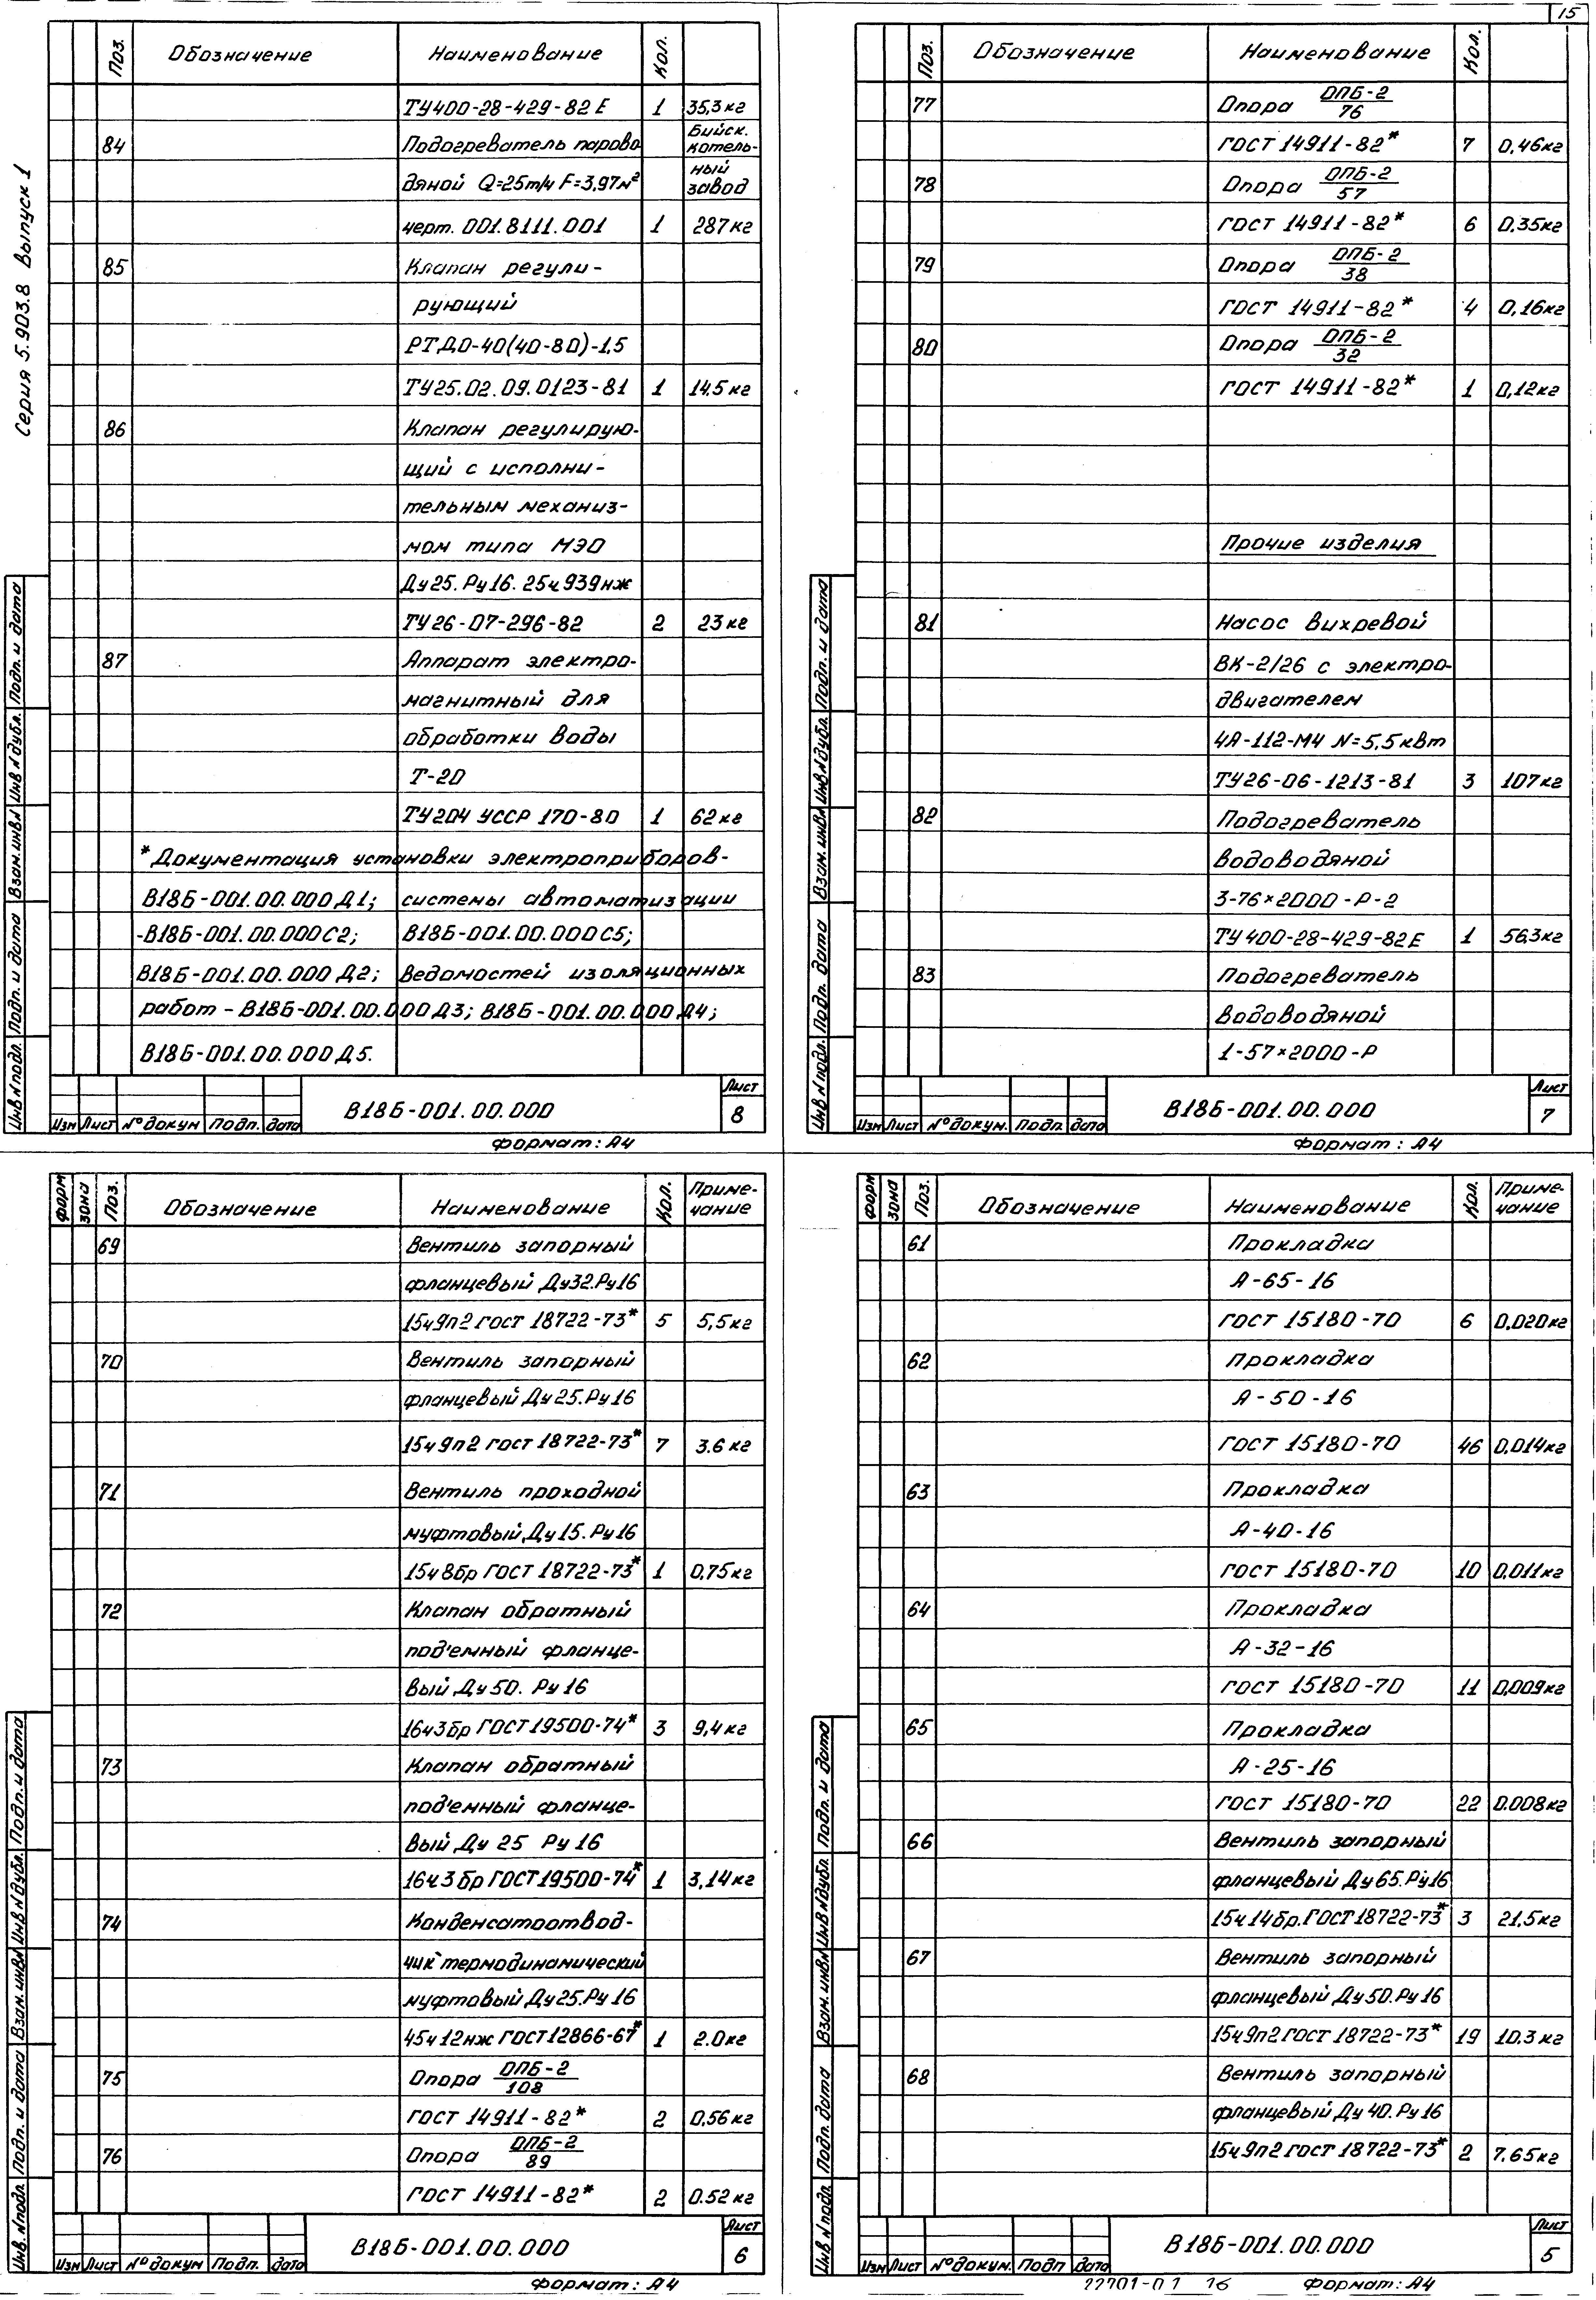 15
Серия 5.903.8 Выпуск 1
Поз. Обозначение Наименование Кол.
ТУ400-28-429-82 Е 1 35,3 кг
84 Подогреватель парово- Бийск. котель-
дяной Q=25т/ч F=3,97м² ный завод
черт. 001.8111.001 1 287 кг
85 Клапан регули-
рующий
РТДО-40(40-80)-1,5
ТУ25.02.09.0123-81 1 14,5 кг
86 Клапан регулирую-
щий с исполни-
тельным механиз-
мом типа МЭО
Ду25. Ру16. 25ч939нж
ТУ26-07-296-82 2 23 кг
87 Аппарат электро-
магнитный для
обработки воды
Т-20
ТУ204 УССР 170-80 1 62 кг
*Документация установки электроприборов-
В18Б-001.00.000Д1; системы автоматизации
-В18Б-001.00.000С2; В18Б-001.00.000С5;
В18Б-001.00.000Д2; Ведомостей изоляционных
работ - В18Б-001.00.000Д3; В18Б-001.00.000Д4;
В18Б-001.00.000Д5.
Инв.№подл. Подп. и дата Взам.инв№ Инв№дубл. Подп. и дата
Изм Лист №докум Подп. дата
В18Б-001.00.000
Лист
8
Формат: А4
Поз. Обозначение Наименование Кол.
77 Опора ОПБ-2/76
ГОСТ 14911-82* 7 0,46кг
78 Опора ОПБ-2/57
ГОСТ 14911-82* 6 0,35кг
79 Опора ОПБ-2/38
ГОСТ 14911-82* 4 0,16кг
80 Опора ОПБ-2/32
ГОСТ 14911-82* 1 0,12кг
Прочие изделия
81 Насос вихревой
ВК-2/26 с электро-
двигателем
4А-112-М4 N=5,5квт
ТУ26-06-1213-81 3 107 кг
82 Подогреватель
водоводяной
3-76×2000-Р-2
ТУ400-28-429-82Е 1 56,3кг
83 Подогреватель
водоводяной
1-57×2000-Р
Инв№подл. Подп. дата Взам.инв№ Инв№дубл. Подп. и дата
Изм Лист №докум. Подп. дата
В18Б-001.00.000
Лист
7
Формат: А4
форм зона Поз. Обозначение Наименование Кол. Приме-чание
69 Вентиль запорный
фланцевый Ду32.Ру16
15ч9п2 ГОСТ 18722-73* 5 5,5кг
70 Вентиль запорный
фланцевый Ду25.Ру16
15ч9п2 ГОСТ 18722-73* 7 3.6 кг
71 Вентиль проходной
муфтовый,Ду15.Ру16
15ч8бр ГОСТ 18722-73* 1 0,75кг
72 Клапан обратный
под'емный фланце-
вый,Ду50. Ру16
16ч3бр ГОСТ19500-74* 3 9,4кг
73 Клапан обратный
под'емный фланце-
вый,Ду 25 Ру 16
16ч3бр ГОСТ19500-74* 1 3,14кг
74 Конденсатоотвод-
чик термодинамический
муфтовый Ду25.Ру16
45ч12нж ГОСТ12866-67* 1 2.0кг
75 Опора ОПБ-2/108
ГОСТ 14911-82* 2 0,56кг
76 Опора ОПБ-2/89
ГОСТ 14911-82* 2 0.52кг
Инв.№подл. Подп. и дата Взам.инв№ Инв№дубл. Подп.и дата
Изм Лист №докум Подп. дата
В18Б-001.00.000
Лист
6
Формат: А4
форм зона Поз. Обозначение Наименование Кол. Приме-чание
61 Прокладка
А-65-16
ГОСТ 15180-70 6 0,020кг
62 Прокладка
А-50-16
ГОСТ 15180-70 46 0,014кг
63 Прокладка
А-40-16
ГОСТ 15180-70 10 0,011кг
64 Прокладка
А-32-16
ГОСТ 15180-70 11 0,009кг
65 Прокладка
А-25-16
ГОСТ 15180-70 22 0.008кг
66 Вентиль запорный
фланцевый Ду65.Ру16
15ч14бр.ГОСТ18722-73* 3 21,5кг
67 Вентиль запорный
фланцевый,Ду50.Ру16
15ч9п2 ГОСТ 18722-73* 19 10.3 кг
68 Вентиль запорный
фланцевый,Ду40.Ру16
15ч9п2 ГОСТ 18722-73* 2 7.65кг
Инв№подл Подп. дата Взам.инв№ Инв№дубл. Подп. и дата
Изм Лист №докум. Подп дата
В18Б-001.00.000
Лист
5
22701-01 16 Формат: А4